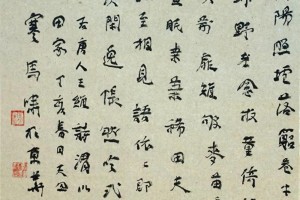 陽照墟落窮巷牛
野老念牧童倚
雉雊麥苗
眠桑葉稀田夫
至相見語依依即
羨閑逸悵然吟式
右唐人王維詩渭川
田家丁亥春日
寒馬嘯於